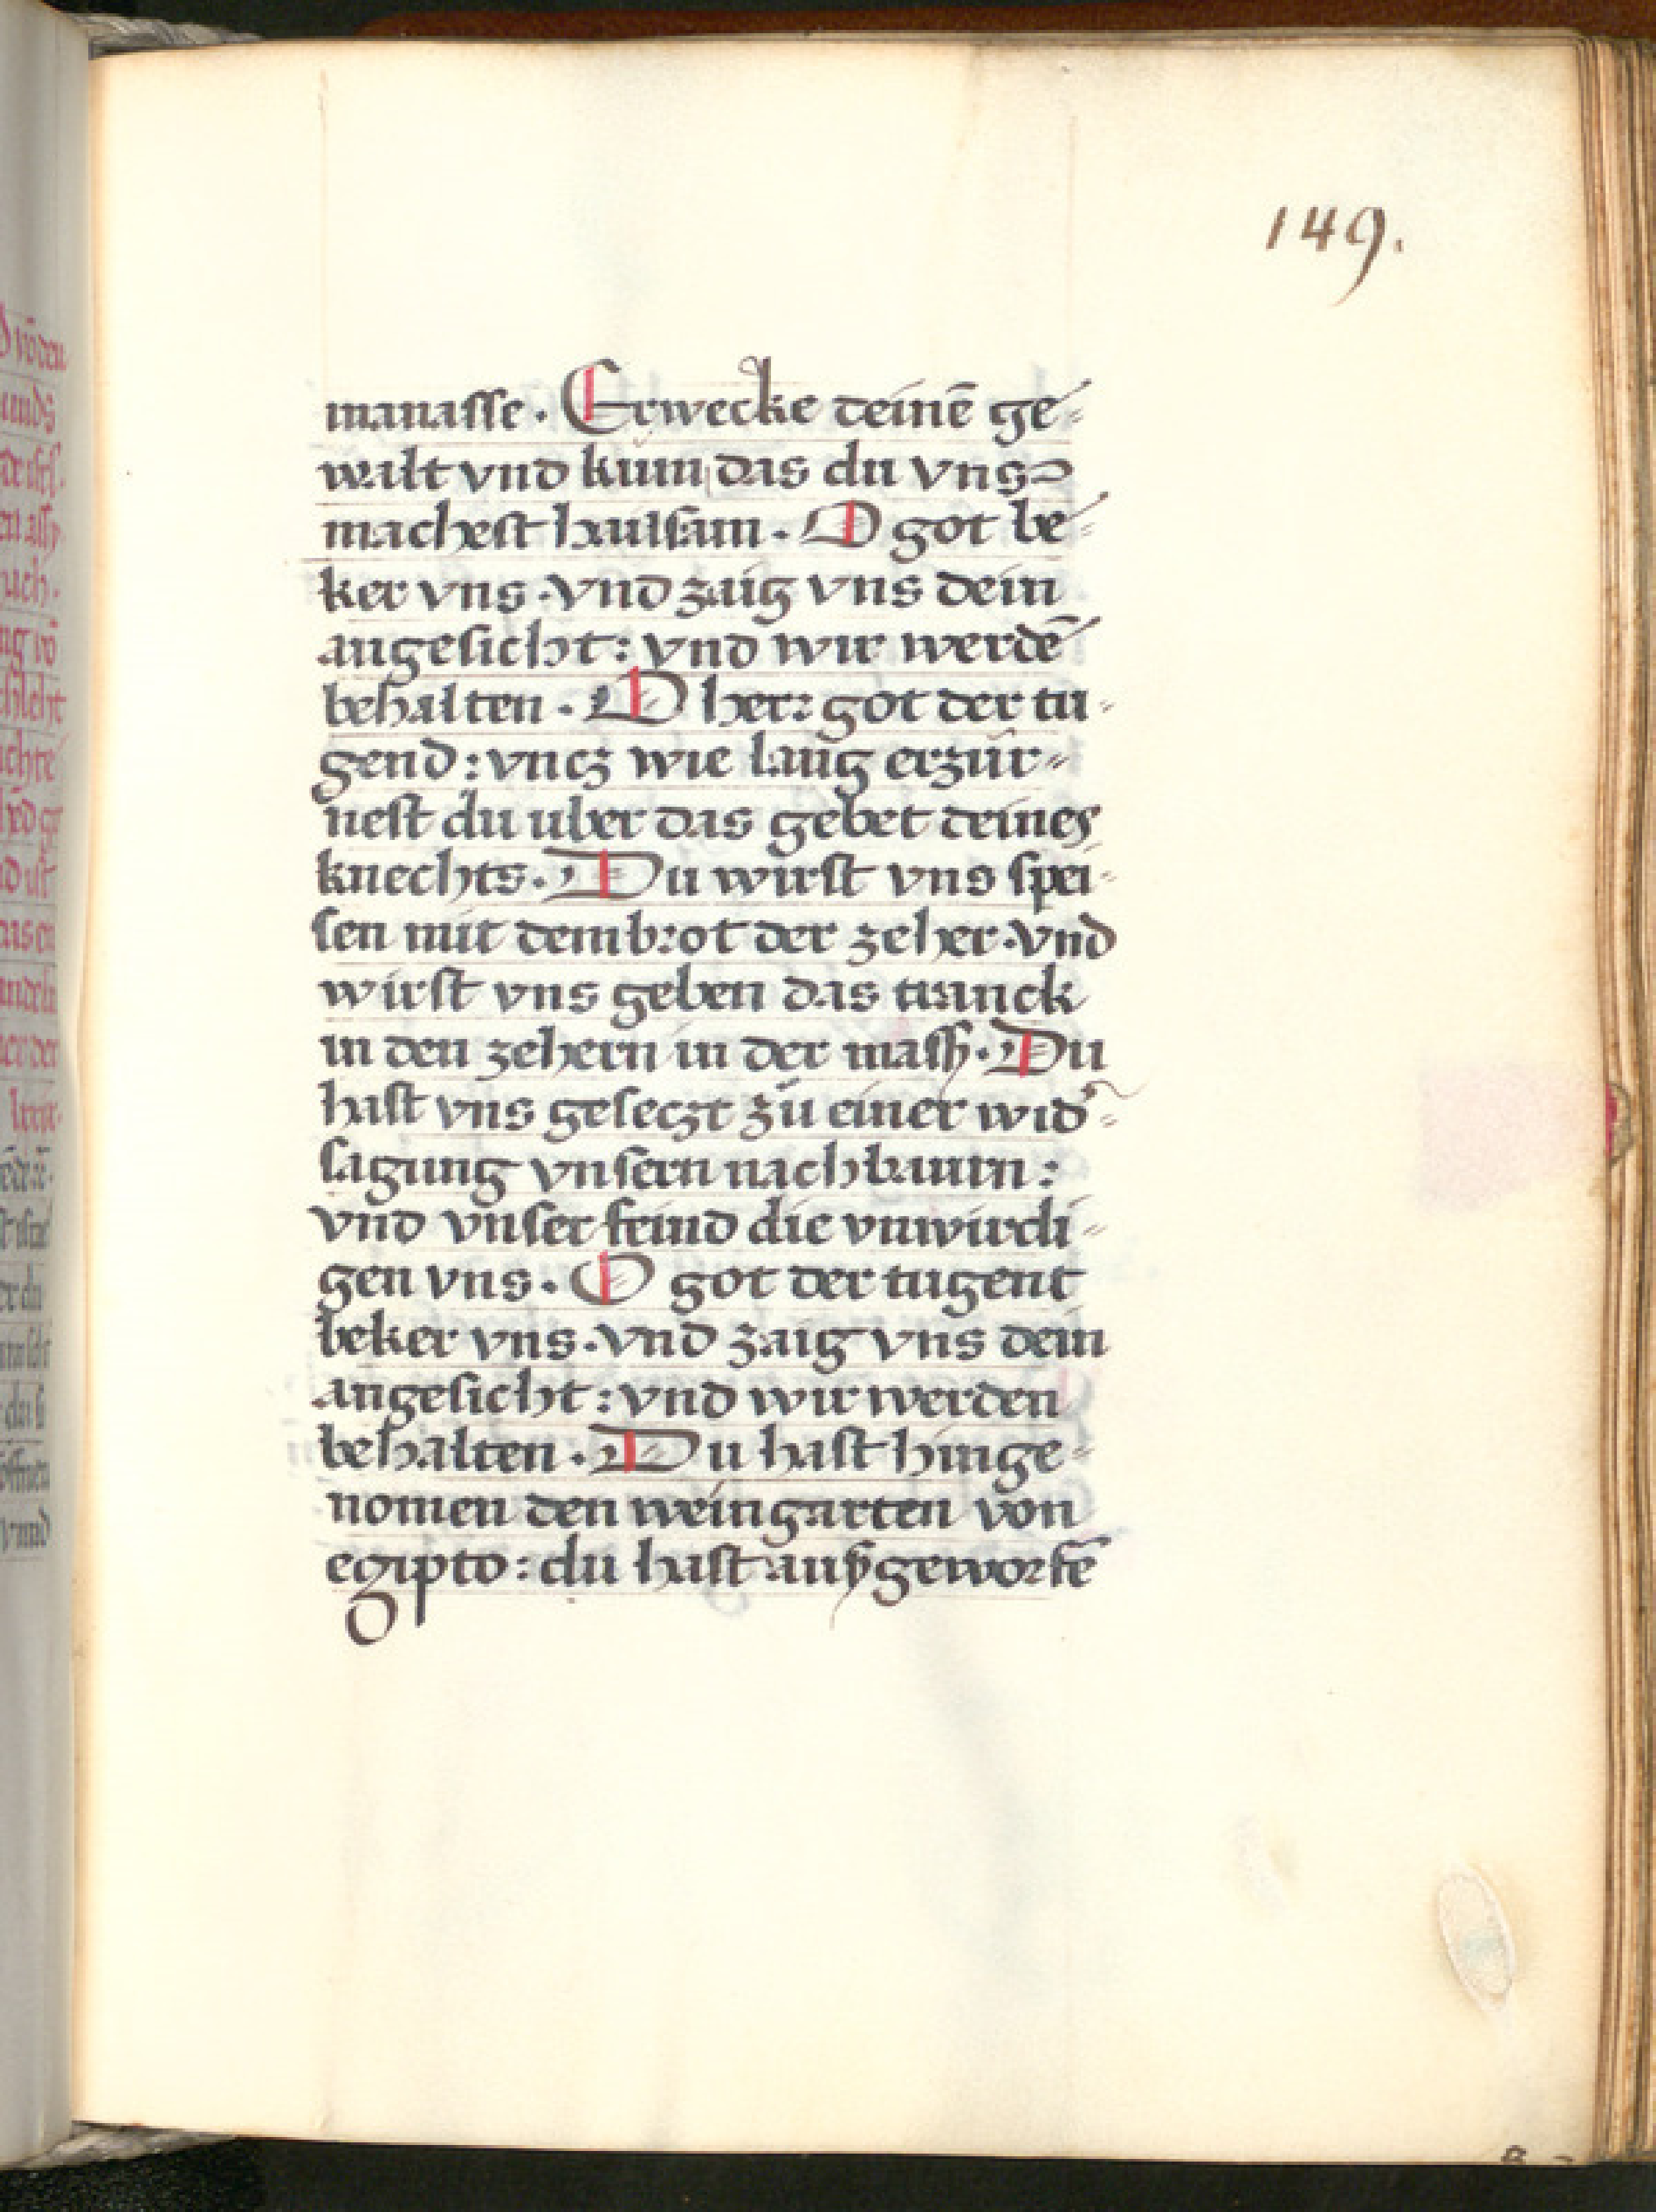 149.
manasse · Erwecke deinē ge-
walt vnd kum das du vns
machest hailsam · O got be-
ker vns · vnd zaig vns dein
angesicht: vnd wir werdē
behalten · O herr got der tu-
gend: vncz wie lang erzür-
nest du uber das gebet deines
knechts · Du wirst vns spei-
sen mit dem brot der zeher · vnd
wirst vns geben das tranck
in den zehern in der mass · Du
hast vns geseczt zů einer wid͛-
sagung vnsern nachbaurn:
vnd vnser feind die vnwirdi-
gen vns · O got der tugent
beker vns · vnd zaig vns dein
angesicht: vnd wir werden
behalten · Du hast hinge-
nomen den weingarten von
egipto: du hast außgeworfē